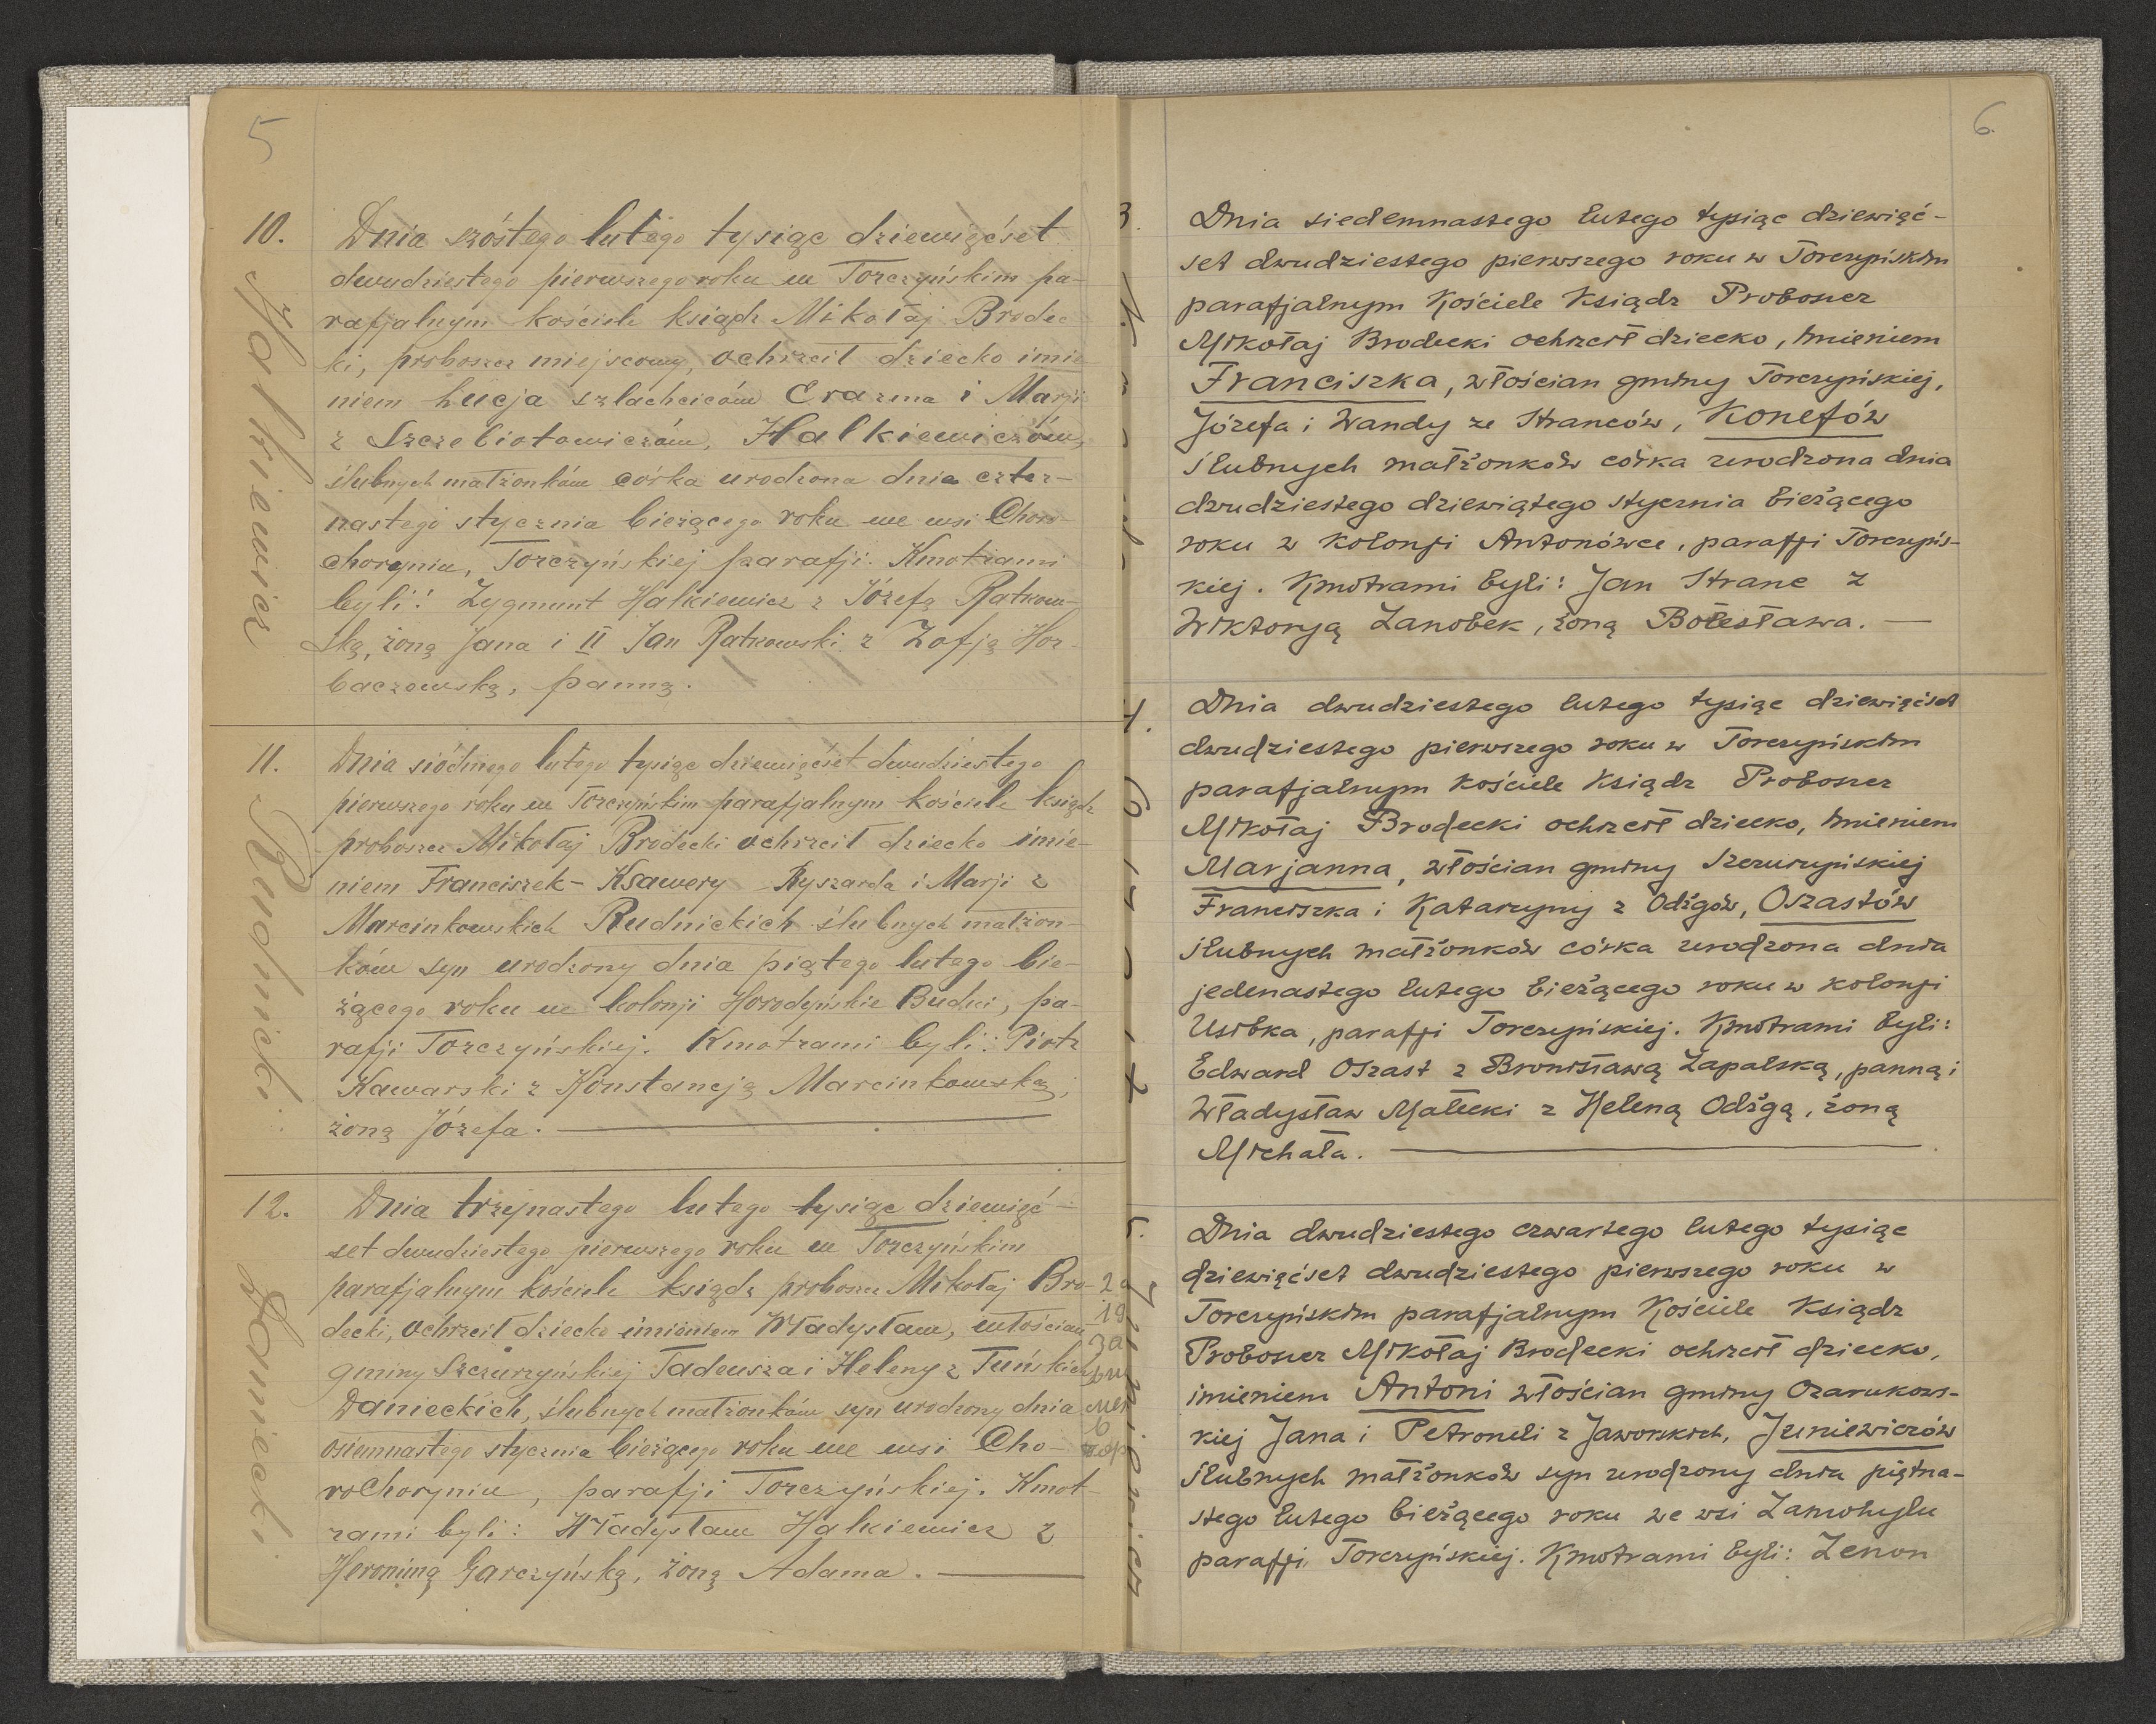 5
10.
Halkiewicz
Dnia szóstego lutego tysiąc dziewięćset
dwudziestego pierwszego roku w Torczyńskim pa-
rafjalnym kościele ksiądz Mikołaj Brodec
ki, proboszcz miejscowy, ochrzcił dziecko imie
niem Łucja szlachciców Erazma i Marji
z Szczebiotowiczów, Halkiewiczów,
ślubnych małżonków córka urodzona dnia czter-
nastego stycznia bieżącego roku we wsi Choro-
choryniu, Torczyńskiej parafji. Kmotrami
byli: Zygmunt Halkiewicz z Józefą Ratkow-
ską, żoną Jana i II Jan Ratkowski z Zofją Hor-
baczewską, panną.
11.
Rudnicki.
Dnia siódmego lutego tysiąc dziewięćset dwudziestego
pierwszego roku w Torczyńskim parafjalnym kościele ksiądz
proboszcz Mikołaj Brodecki ochrzcił dziecko imie-
niem Franciszek-Ksawery Ryszarda i Marji z
Marcinkowskich Rudnickich ślubnych małżon-
ków syn urodzony dnia piątego lutego bie-
żącego roku w kolonji Horodyńskie Budki, pa-
rafji Torczyńskiej. Kmotrami byli: Piotr
Kawarski z Konstancją Marcinkowską,
żoną Józefa.
12.
Daniecki.
Dnia trzynastego lutego tysiąc dziewięć-
set dwudziestego pierwszego roku w Torczyńskim
parafjalnym kościele ksiądz proboszcz Mikołaj Bro-
decki, ochrzcił dziecko imieniem Władysław, włościan
gminy Szczurzyńskiej Tadeusza i Heleny z Tuńskich
Danieckich, ślubnych małżonków syn urodzony dnia
osiemnastego stycznia bieżącego roku we wsi Cho-
rochoryniu, parafji Torczyńskiej. Kmot-
rami byli: Władysław Halkiewicz z
Heronimą Garczyńską, żoną Adama.
6.
3.
Dnia siedemnastego lutego tysiąc dziewięć-
set dwudziestego pierwszego roku w Torczyńskim
parafjalnym Kościele Ksiądz Proboszcz
Mikołaj Brodecki ochrzcił dziecko, imieniem
Franciszka, włościan gminy Torczyńskiej,
Józefa i Wandy ze Stranców, Konefów
ślubnych małżonków córka urodzona dnia
dwudziestego dziewiątego stycznia bieżącego
roku w kolonji Antonówce, parafji Torczyńs-
kiej. Kmotrami byli: Jan Stranc z
Wiktorją Zanobek, żoną Bolesława.
4.
Dnia dwudziestego lutego tysiąc dziewięćset
dwudziestego pierwszego roku w Torczyńskim
parafjalnym Kościele Ksiądz Proboszcz
Mikołaj Brodecki ochrzcił dziecko, imieniem
Marjanna, włościan gminy Szczurzyńskiej
Franciszka i Katarzyny z Odżgów, Oszastów
ślubnych małżonków córka urodzona dnia
jedenastego lutego bieżącego roku w kolonji
Usibka, parafji Torczyńskiej. Kmotrami byli:
Edward Oszast z Bronisławą Zapalską, panną i
Władysław Małecki z Heleną Odżgą, żoną
Michała.
5.
Dnia dwudziestego czwartego lutego tysiąc
dziewięćset dwudziestego pierwszego roku w
Torczyńskim parafjalnym Kościele Ksiądz
Proboszcz Mikołaj Brodecki ochrzcił dziecko,
imieniem Antoni włościan gminy Czarukows-
kiej Jana i Petroneli z Jaworskich, Juniewiczów
ślubnych małżonków syn urodzony dnia piętna-
stego lutego bieżącego roku we wsi Zamohylu
parafji Torczyńskiej. Kmotrami byli: Zenon